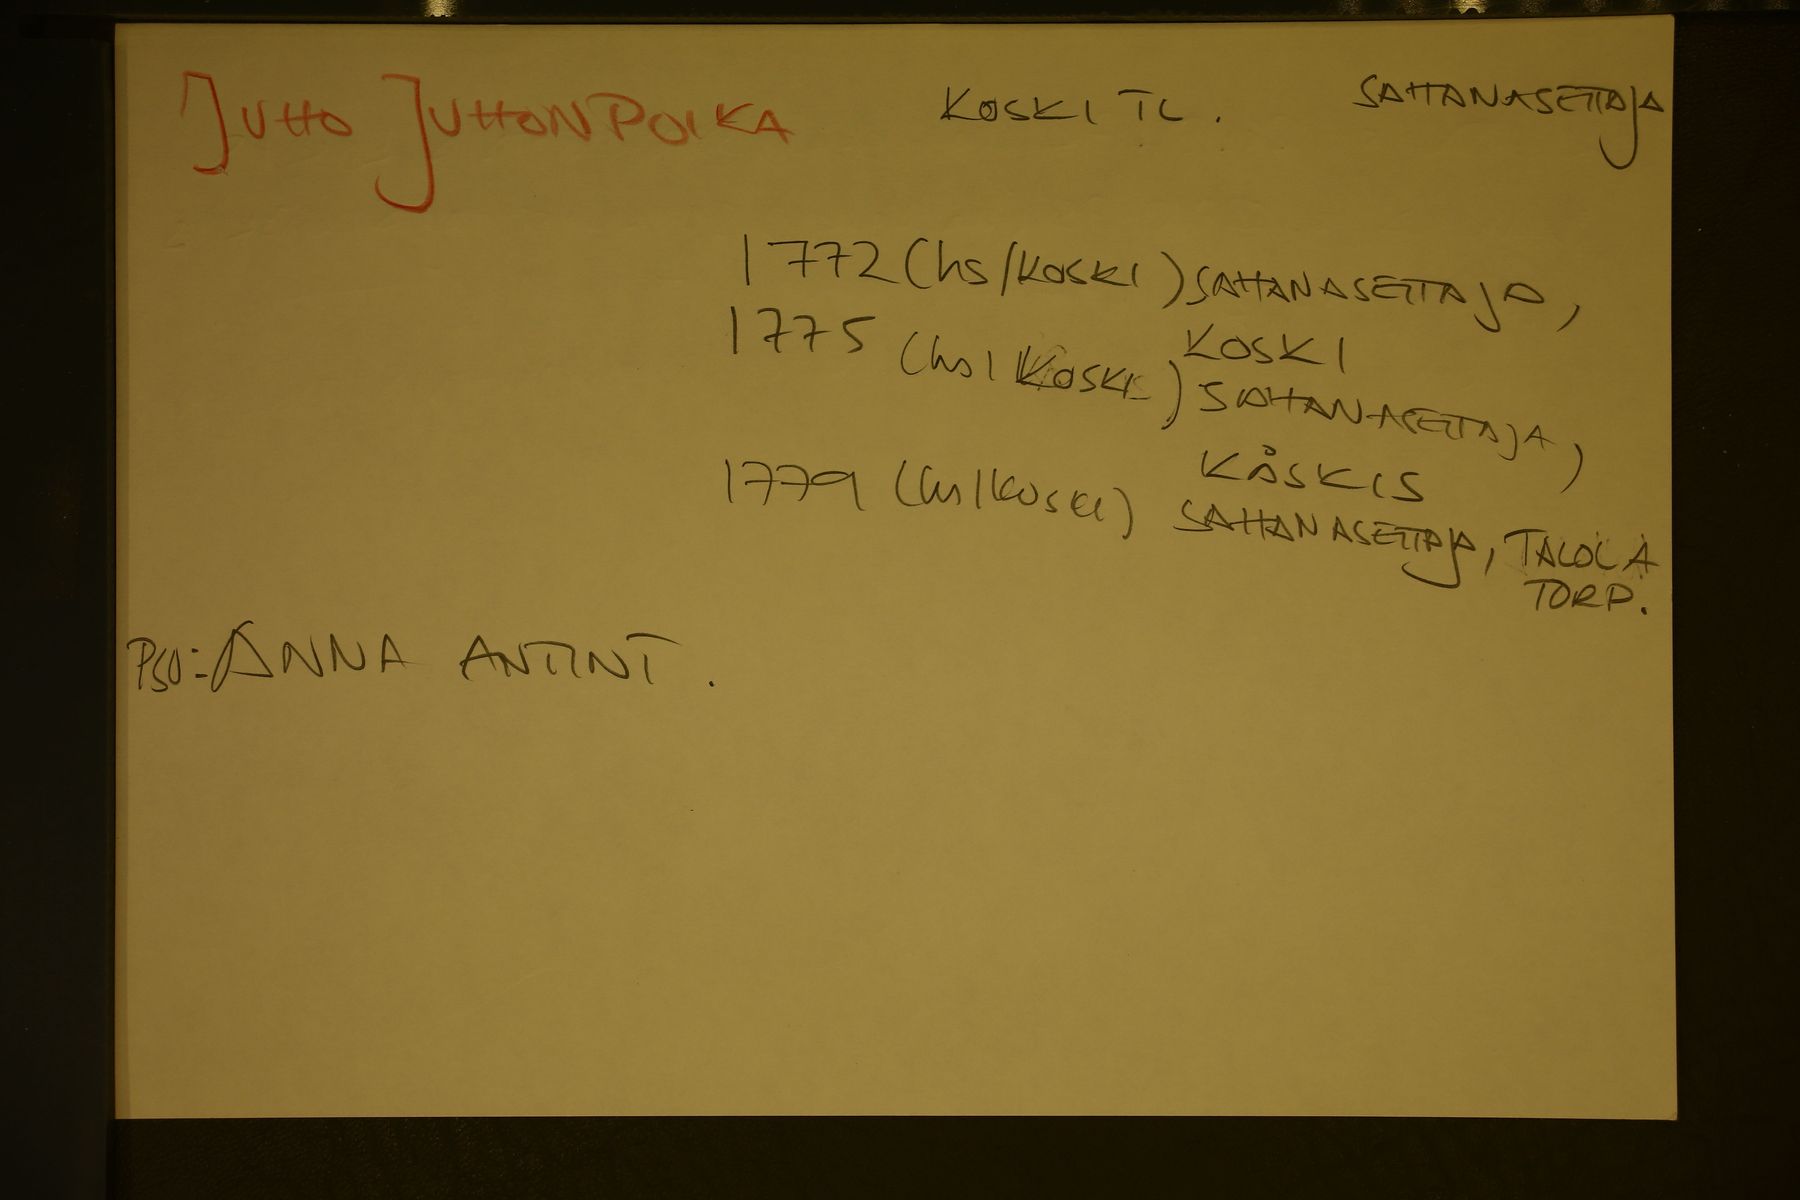 JUHO JUHONPOIKA KOSKI TL. SAHANASETTAJA
1772 (hs/KOSKI) SAHANASETTAJA,
KOSKI
1775 (hs/KOSKI) SAHANASETTAJA,
KÅSKIS
1779 (hs/KOSKI) SAHANASETTAJA, TALOLA
TORP.
PSO: ANNA ANTINT.